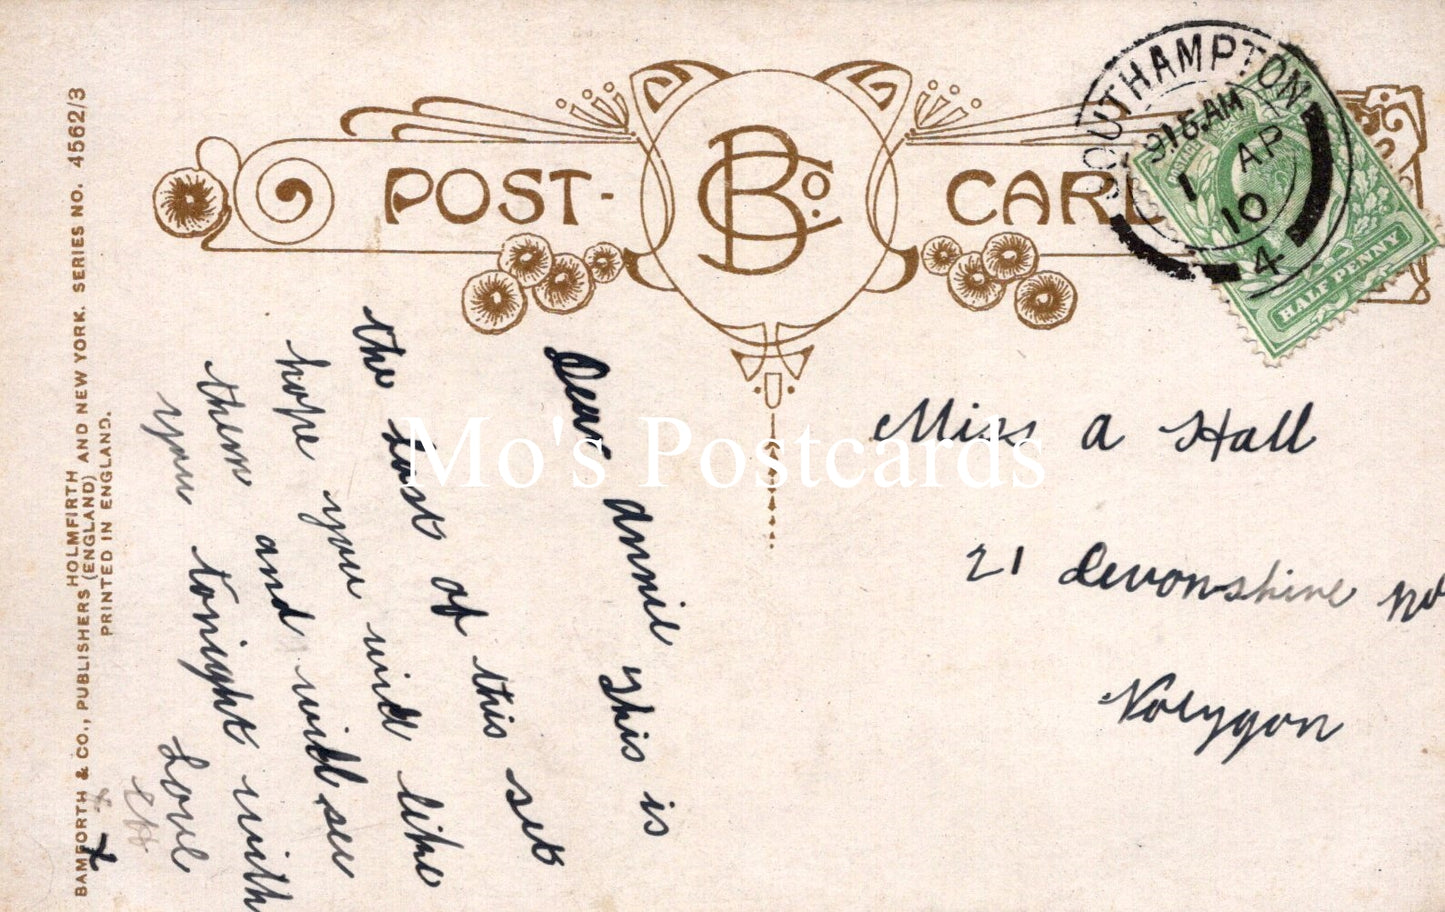 POST- CARD
BCo.
SOUTHAMPTON
9 15 AM
1 AP
10
4
POSTAGE
HALF PENNY
Miss a Hall
21 Devonshire
Polygon
Dear annie this is
the last of this set
hope you will like
them and will see
you tonight with
Love
x
x
BAMFORTH & CO., PUBLISHERS HOLMFIRTH (ENGLAND) AND NEW YORK. SERIES NO. 4562/3
PRINTED IN ENGLAND.
Mo's Postcards